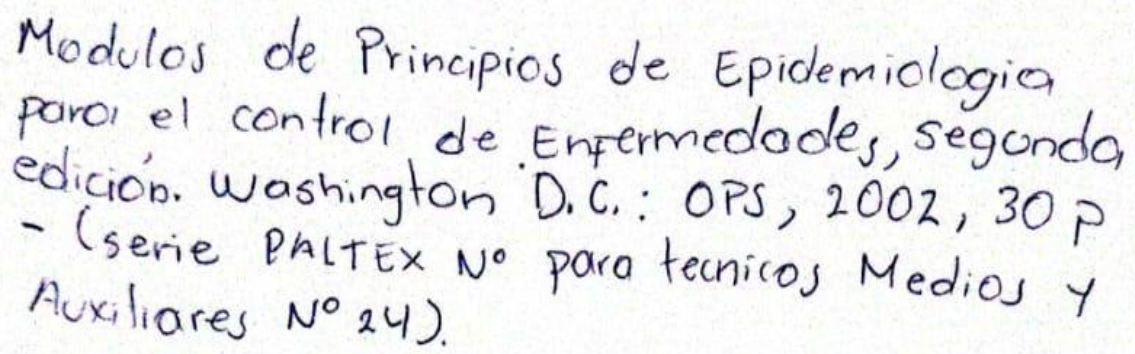 Modulos de Principios de Epidemiologia
para el control de Enfermedades, segunda
edición. Washington D.C.: OPS, 2002, 30 p
- (serie PALTEX Nº para tecnicos Medios y
Auxiliares Nº 24).